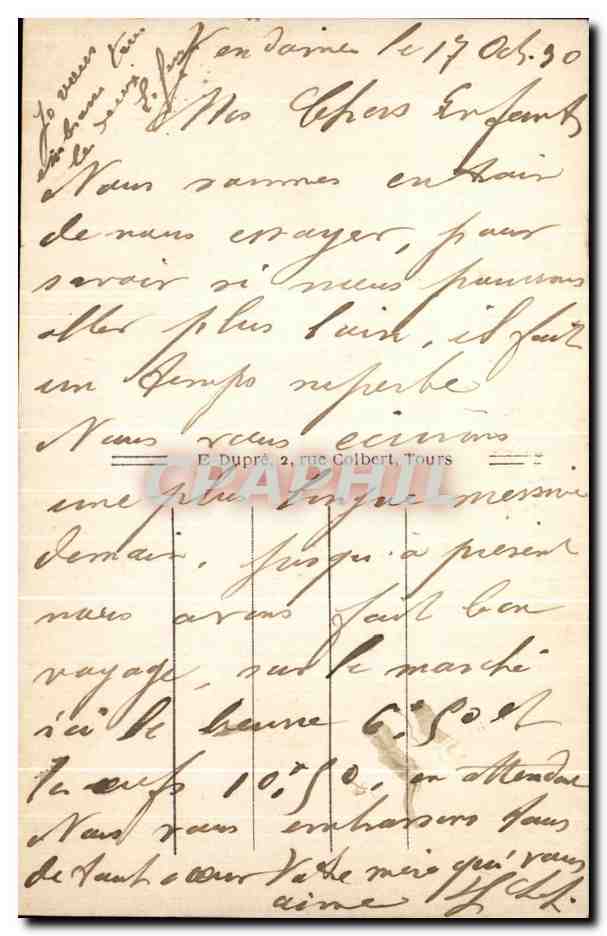 Je vous
embrasse tous
les deux
Vendome le 17 Oct. 30
Mes Chers Enfants
Nous sommes en train
de nous essayer, pour
savoir si nous pouvons
aller plus loin, il fait
un temps superbe
Nous vous écrirons
E. Dupré, 2, rue Colbert, Tours
CPAPHIL
une plus longue missive
demain, jusqu'à présent
nous avons fait bon
voyage, sur le marché
ici le beurre 6,50 et
les œufs 10,50, en attendant
Nous vous embrassons tous
de tout cœur Votre mère qui vous
aime